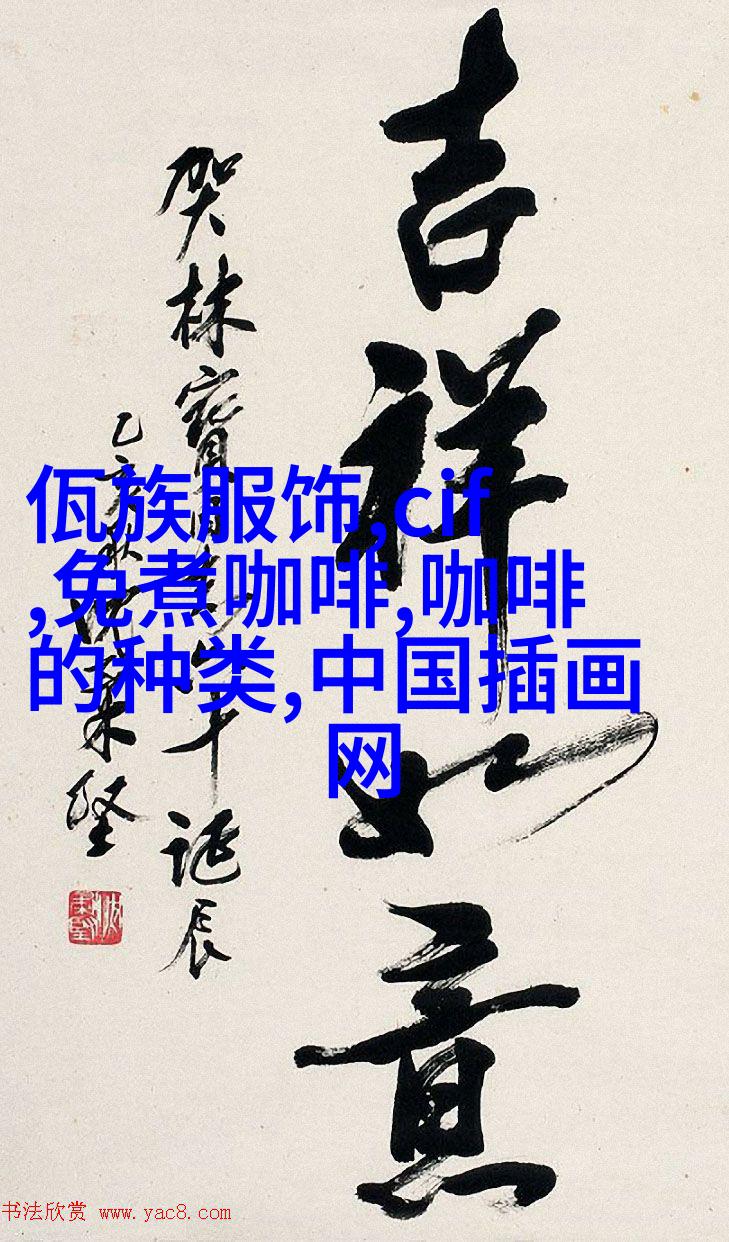 吉祥如意
贺林宝
诞辰
佤族服饰,cif
,免煮咖啡,咖啡
的种类,中国插画
网
书法欣赏 www.yac8.com